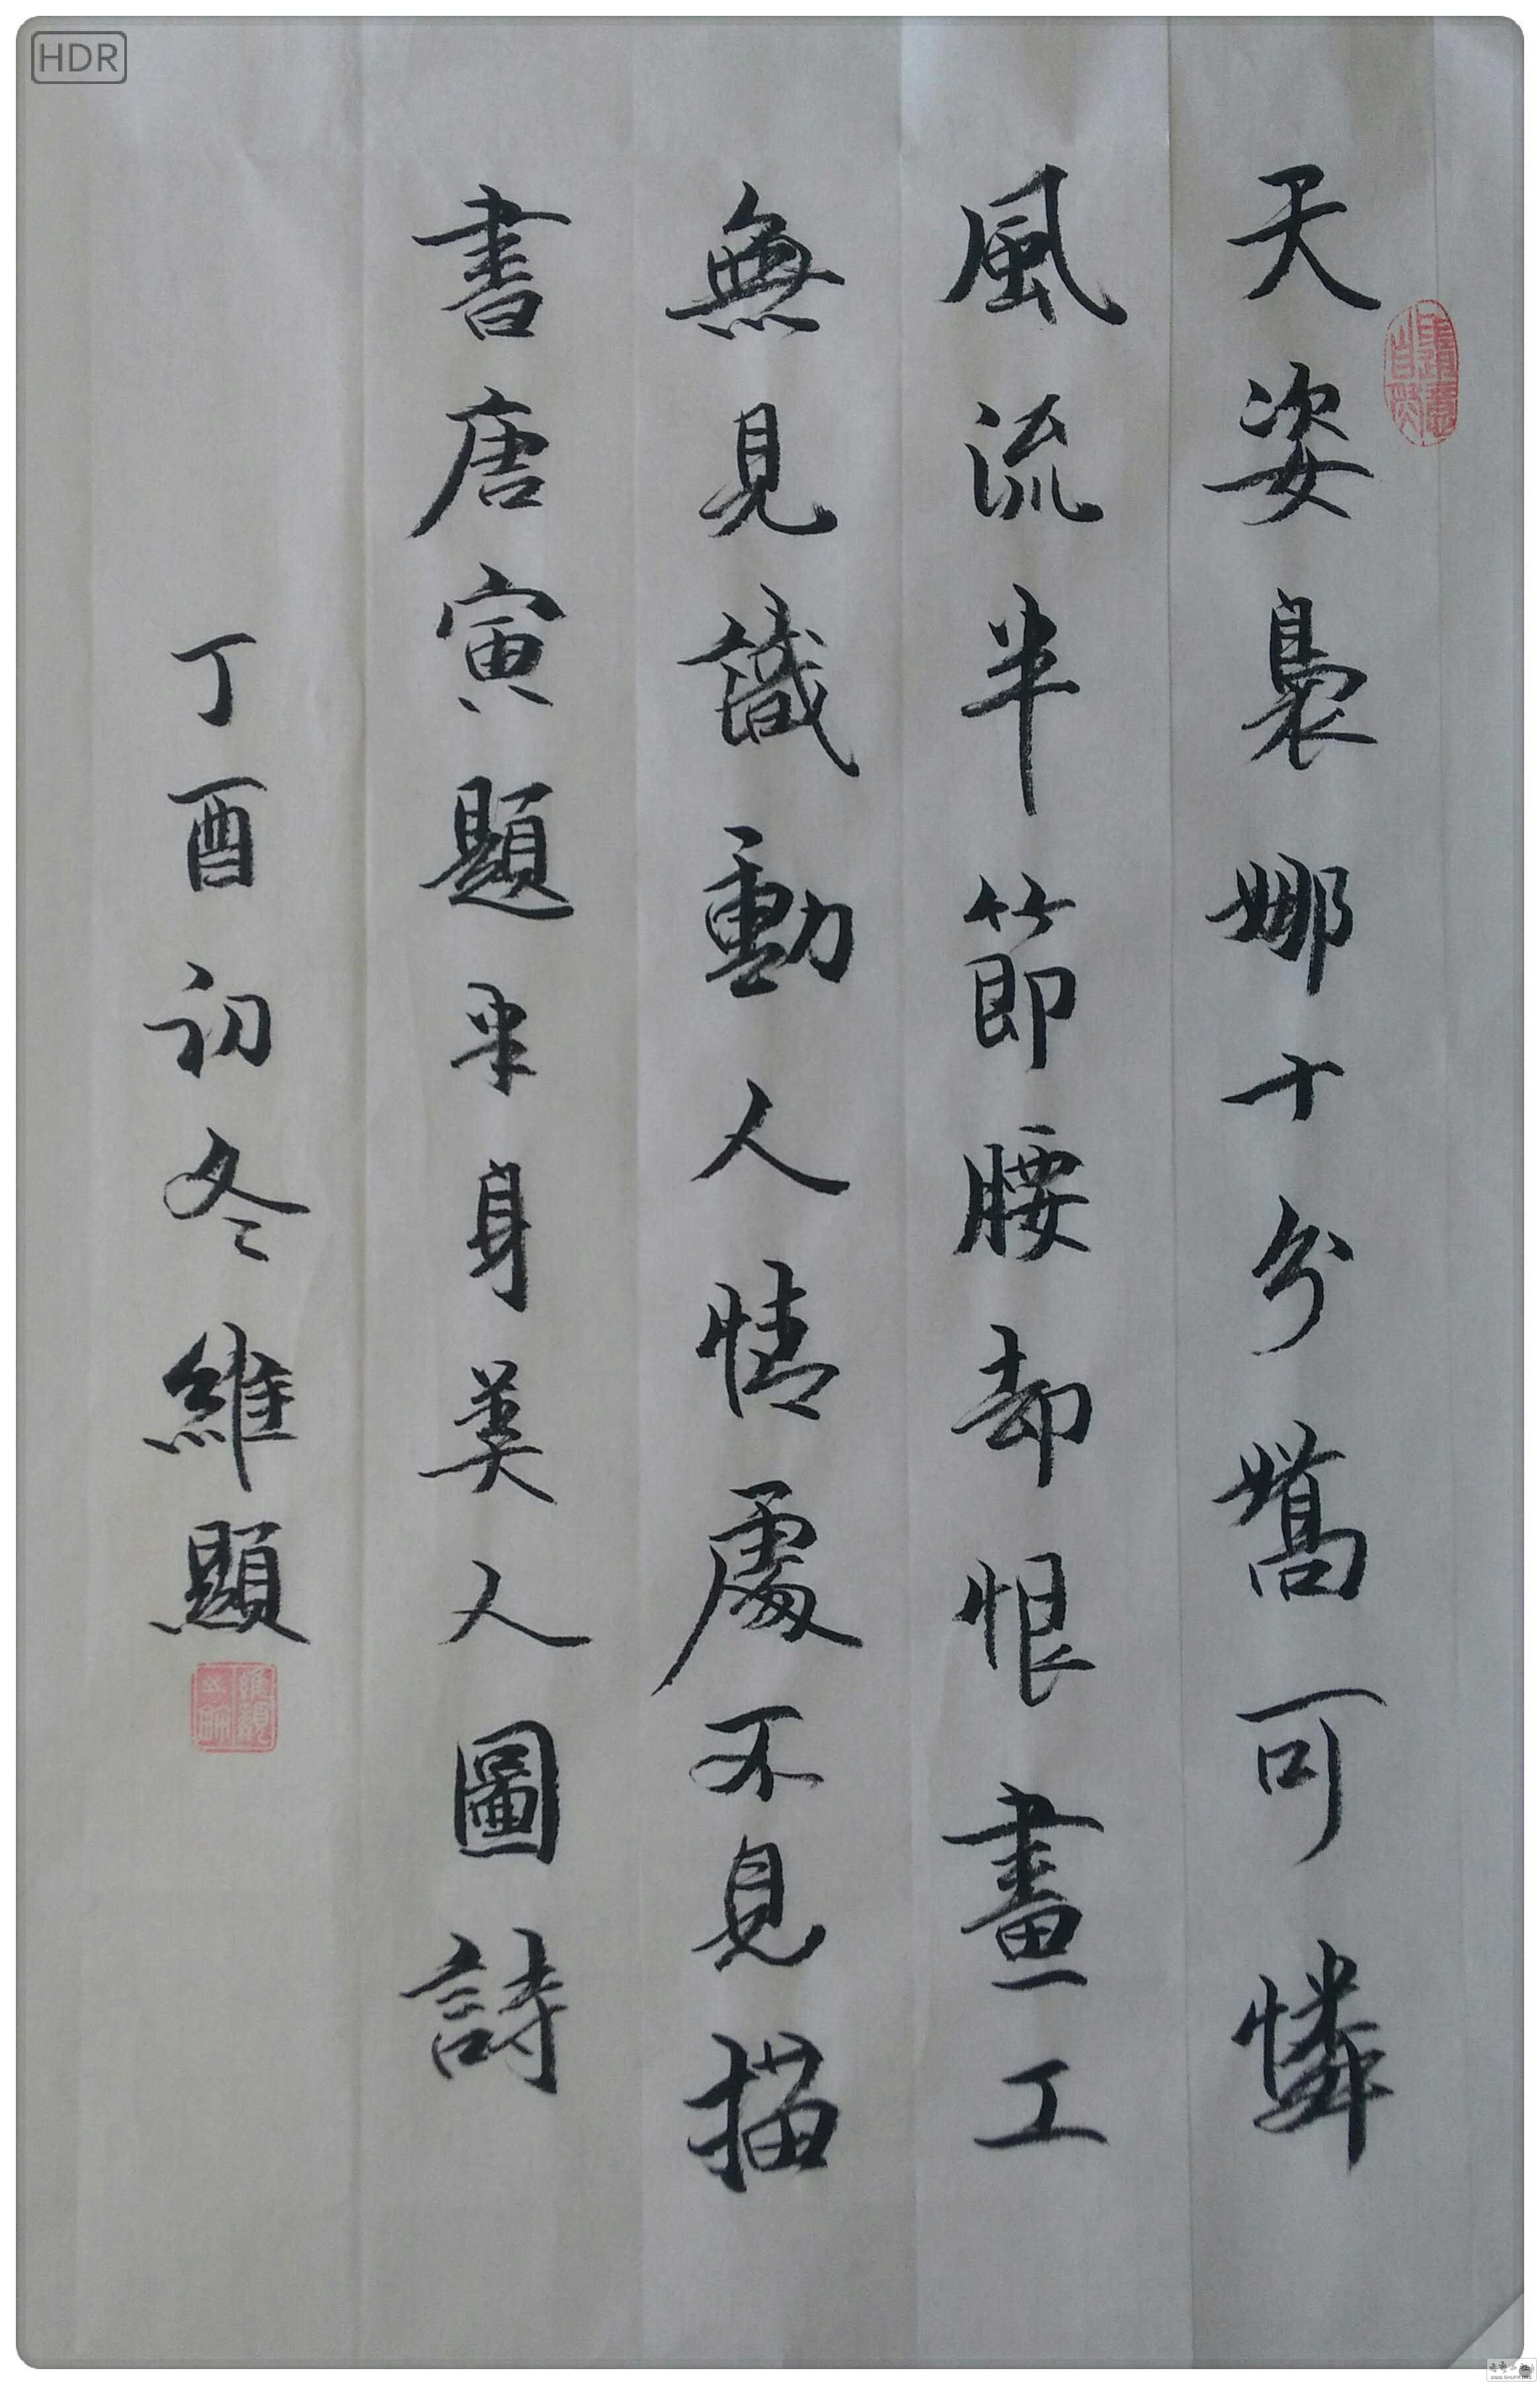 天姿裊娜十分嬌可憐
風流半節腰却恨畫工
無見識動人情處不見描
書唐寅題半身美人圖詩
丁酉初冬維顯
HDR